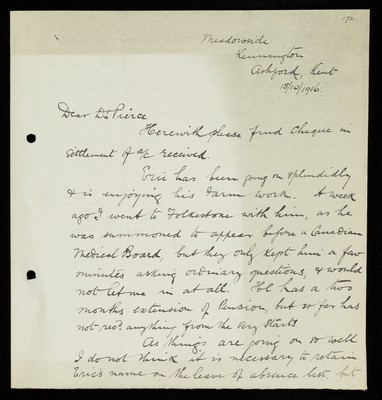 172
Meadowside
Kennington
Ashford, Kent
15/10/1916.
Dear Dr Pierce
Herewith please find cheque in
settlement of a/c received.
Eric has been going on splendidly
& is enjoying his farm work. A week
ago I went to Folkestone with him, as he
was summoned to appear before a Canadian
Medical Board, but they only kept him a few
minutes asking ordinary questions, & would
not let me in at all. He has a two
months extension of Pension, but so far has
not recd. anything from the very start.
As things are going on so well
I do not think it is necessary to retain
Eric's name on the leave of absence list, but